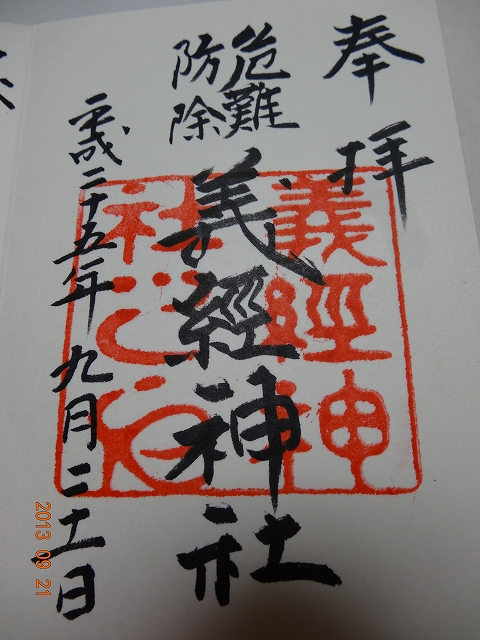 奉拝
危難
防除
義經神社
平成二十五年九月二十一日
義經神
社之印
2013 09 21